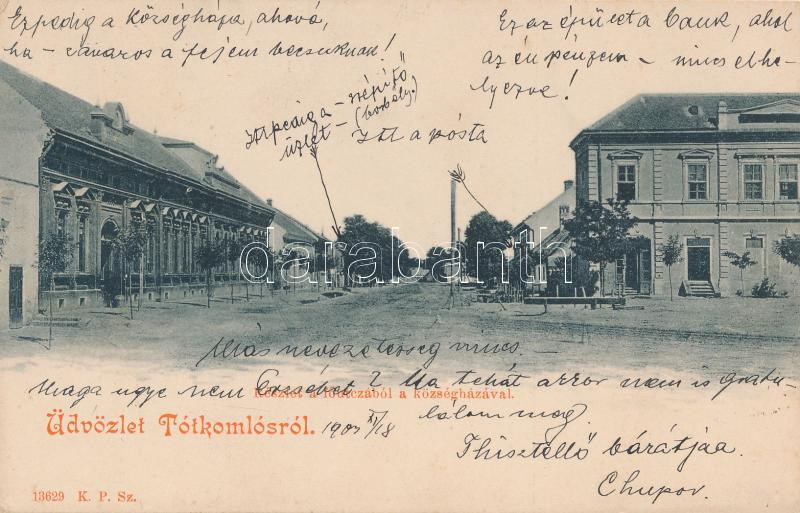 Ez pedig a községháza, ahová,
ha – város a fejem becsuknak!
Ez az épület a bank, ahol
az én pénzem – nincs elhe-
lyezve!
Itt pedig a – szépítő"
üzlet – (borbély.)
Itt a posta
darabanth
Más nevezetesség nincs.
Maga ugye nem Erzsébet? Ha tehát akkor nem is gratu-
lálom meg
Részlet a főutczából a községházával.
Üdvözlet Tótkomlósról. 190 XI/18
Thisztelő barátjaa
Chupor.
13629 K. P. Sz.